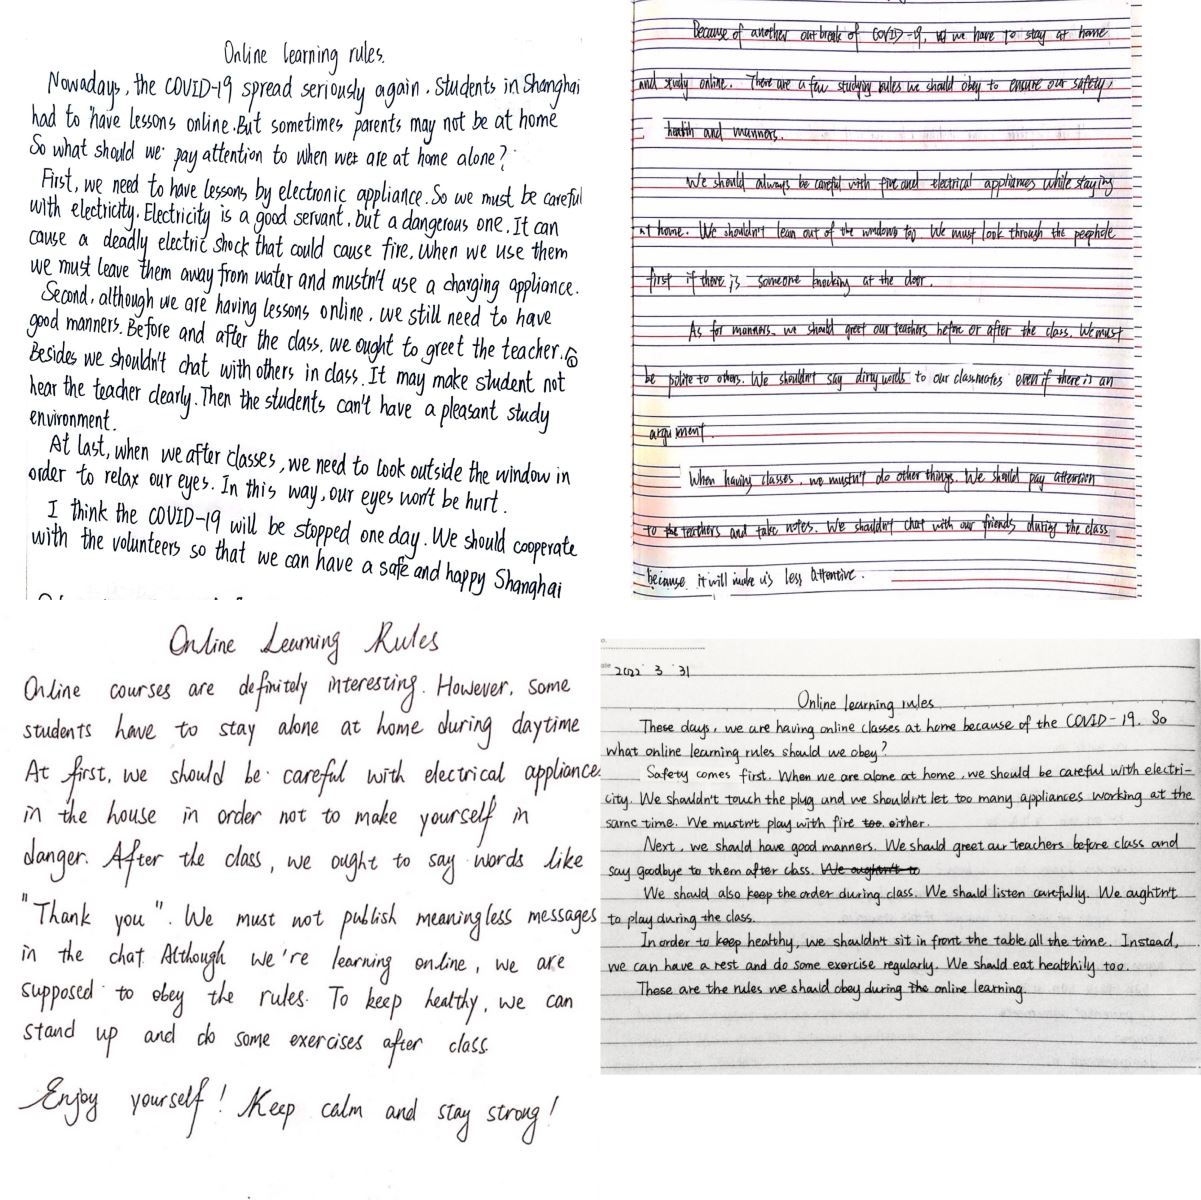 Online learning rules.
Nowadays, the COVID-19 spread seriously again. Students in Shanghai
had to have lessons online. But sometimes parents may not be at home
So what should we pay attention to when we are at home alone?
First, we need to have lessons by electronic appliance. So we must be careful
with electricity. Electricity is a good servant, but a dangerous one. It can
cause a deadly electric shock that could cause fire. When we use them
we must leave them away from water and mustn't use a charging appliance.
Second, although we are having lessons online, we still need to have
good manners. Before and after the class, we ought to greet the teacher.
Besides we shouldn't chat with others in class. It may make student not
hear the teacher clearly. Then the students can't have a pleasant study
environment.
At last, when we after classes, we need to look outside the window in
order to relax our eyes. In this way, our eyes won't be hurt.
I think the COVID-19 will be stopped one day. We should cooperate
with the volunteers so that we can have a safe and happy Shanghai
Because of another outbreak of COVID-19, we have to stay at home
and study online. There are a few studying rules we should obey to ensure our safety,
health and manners.
We should always be careful with fire and electrical appliances while staying
at home. We shouldn't lean out of the windows too. We must look through the peephole
first if there is someone knocking at the door.
As for manners, we should greet our teachers before or after the class. We must
be polite to others. We shouldn't say dirty words to our classmates even if there is an
argument.
When having classes, we mustn't do other things. We should pay attention
to the teachers and take notes. We shouldn't chat with our friends during the class
because it will make us less attentive.
Online Learning Rules
Online courses are definitely interesting. However, some
students have to stay alone at home during daytime
At first, we should be careful with electrical appliances
in the house in order not to make yourself in
danger. After the class, we ought to say words like
"Thank you". We must not publish meaningless messages
in the chat. Although we're learning online, we are
supposed to obey the rules. To keep healthy, we can
stand up and do some exercises after class.
Enjoy yourself! Keep calm and stay strong!
2022 3 31
Online learning rules
These days, we are having online classes at home because of the COVID-19. So
what online learning rules should we obey?
Safety comes first. When we are alone at home, we should be careful with electri-
city. We shouldn't touch the plug and we shouldn't let too many appliances working at the
same time. We mustn't play with fire too. either.
Next, we should have good manners. We should greet our teachers before class and
say goodbye to them after class. We oughtn't to
We should also keep the order during class. We should listen carefully. We oughtn't
to play during the class.
In order to keep healthy, we shouldn't sit in front the table all the time. Instead,
we can have a rest and do some exercise regularly. We should eat healthily too.
These are the rules we should obey during the online learning.